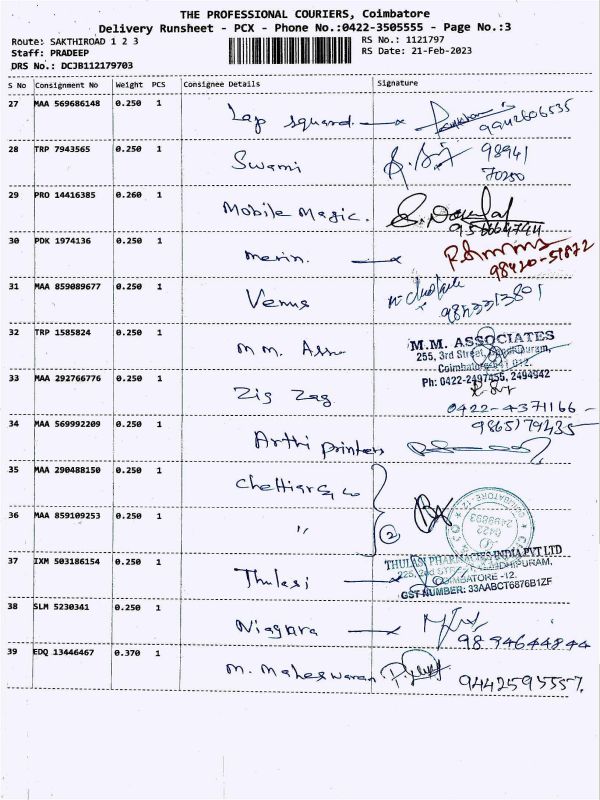 THE PROFESSIONAL COURIERS, Coimbatore
Delivery Runsheet - PCX - Phone No.:0422-3505555 - Page No.:3
Route: SAKTHIROAD 1 2 3 RS No.: 1121797
Staff: PRADEEP RS Date: 21-Feb-2023
DRS No.: DCJB112179703
S No Consignment No Weight PCS Consignee Details Signature
27 MAA 569686148 0.250 1 Lap squard 9942606535
28 TRP 7943565 0.250 1 Swami 98941
70250
29 PRO 14416385 0.260 1 Mobile Magic.
9566664744
30 PDK 1974136 0.250 1 merin. 98420-51872
31 MAA 859089677 0.250 1 Venus
32 TRP 1585824 0.250 1 M.M. Asso M.M. ASSOCIATES
255, 3rd Street,
Coimbatore-641 012.
Ph: 0422-2497455, 2494942
33 MAA 292766776 0.250 1 Zig Zag
0422-4371166 -
34 MAA 569992209 0.250 1 Arthi printers 9865179235
35 MAA 290488150 0.250 1 Chettiar & co
36 MAA 859109253 0.250 1 " 2
COIMBATORE-12
0422
2499893
37 IXM 503186154 0.250 1 Thulasi THULASI PHARMACIES INDIA PVT LTD
225, 2nd STREET, GANDHIPURAM,
COIMBATORE -12.
GST NUMBER: 33AABCT6876B1ZF
38 SLM 5230341 0.250 1 Niagara 9894644844
39 EDQ 13446467 0.370 1 M. Maheswaran 9442595557.